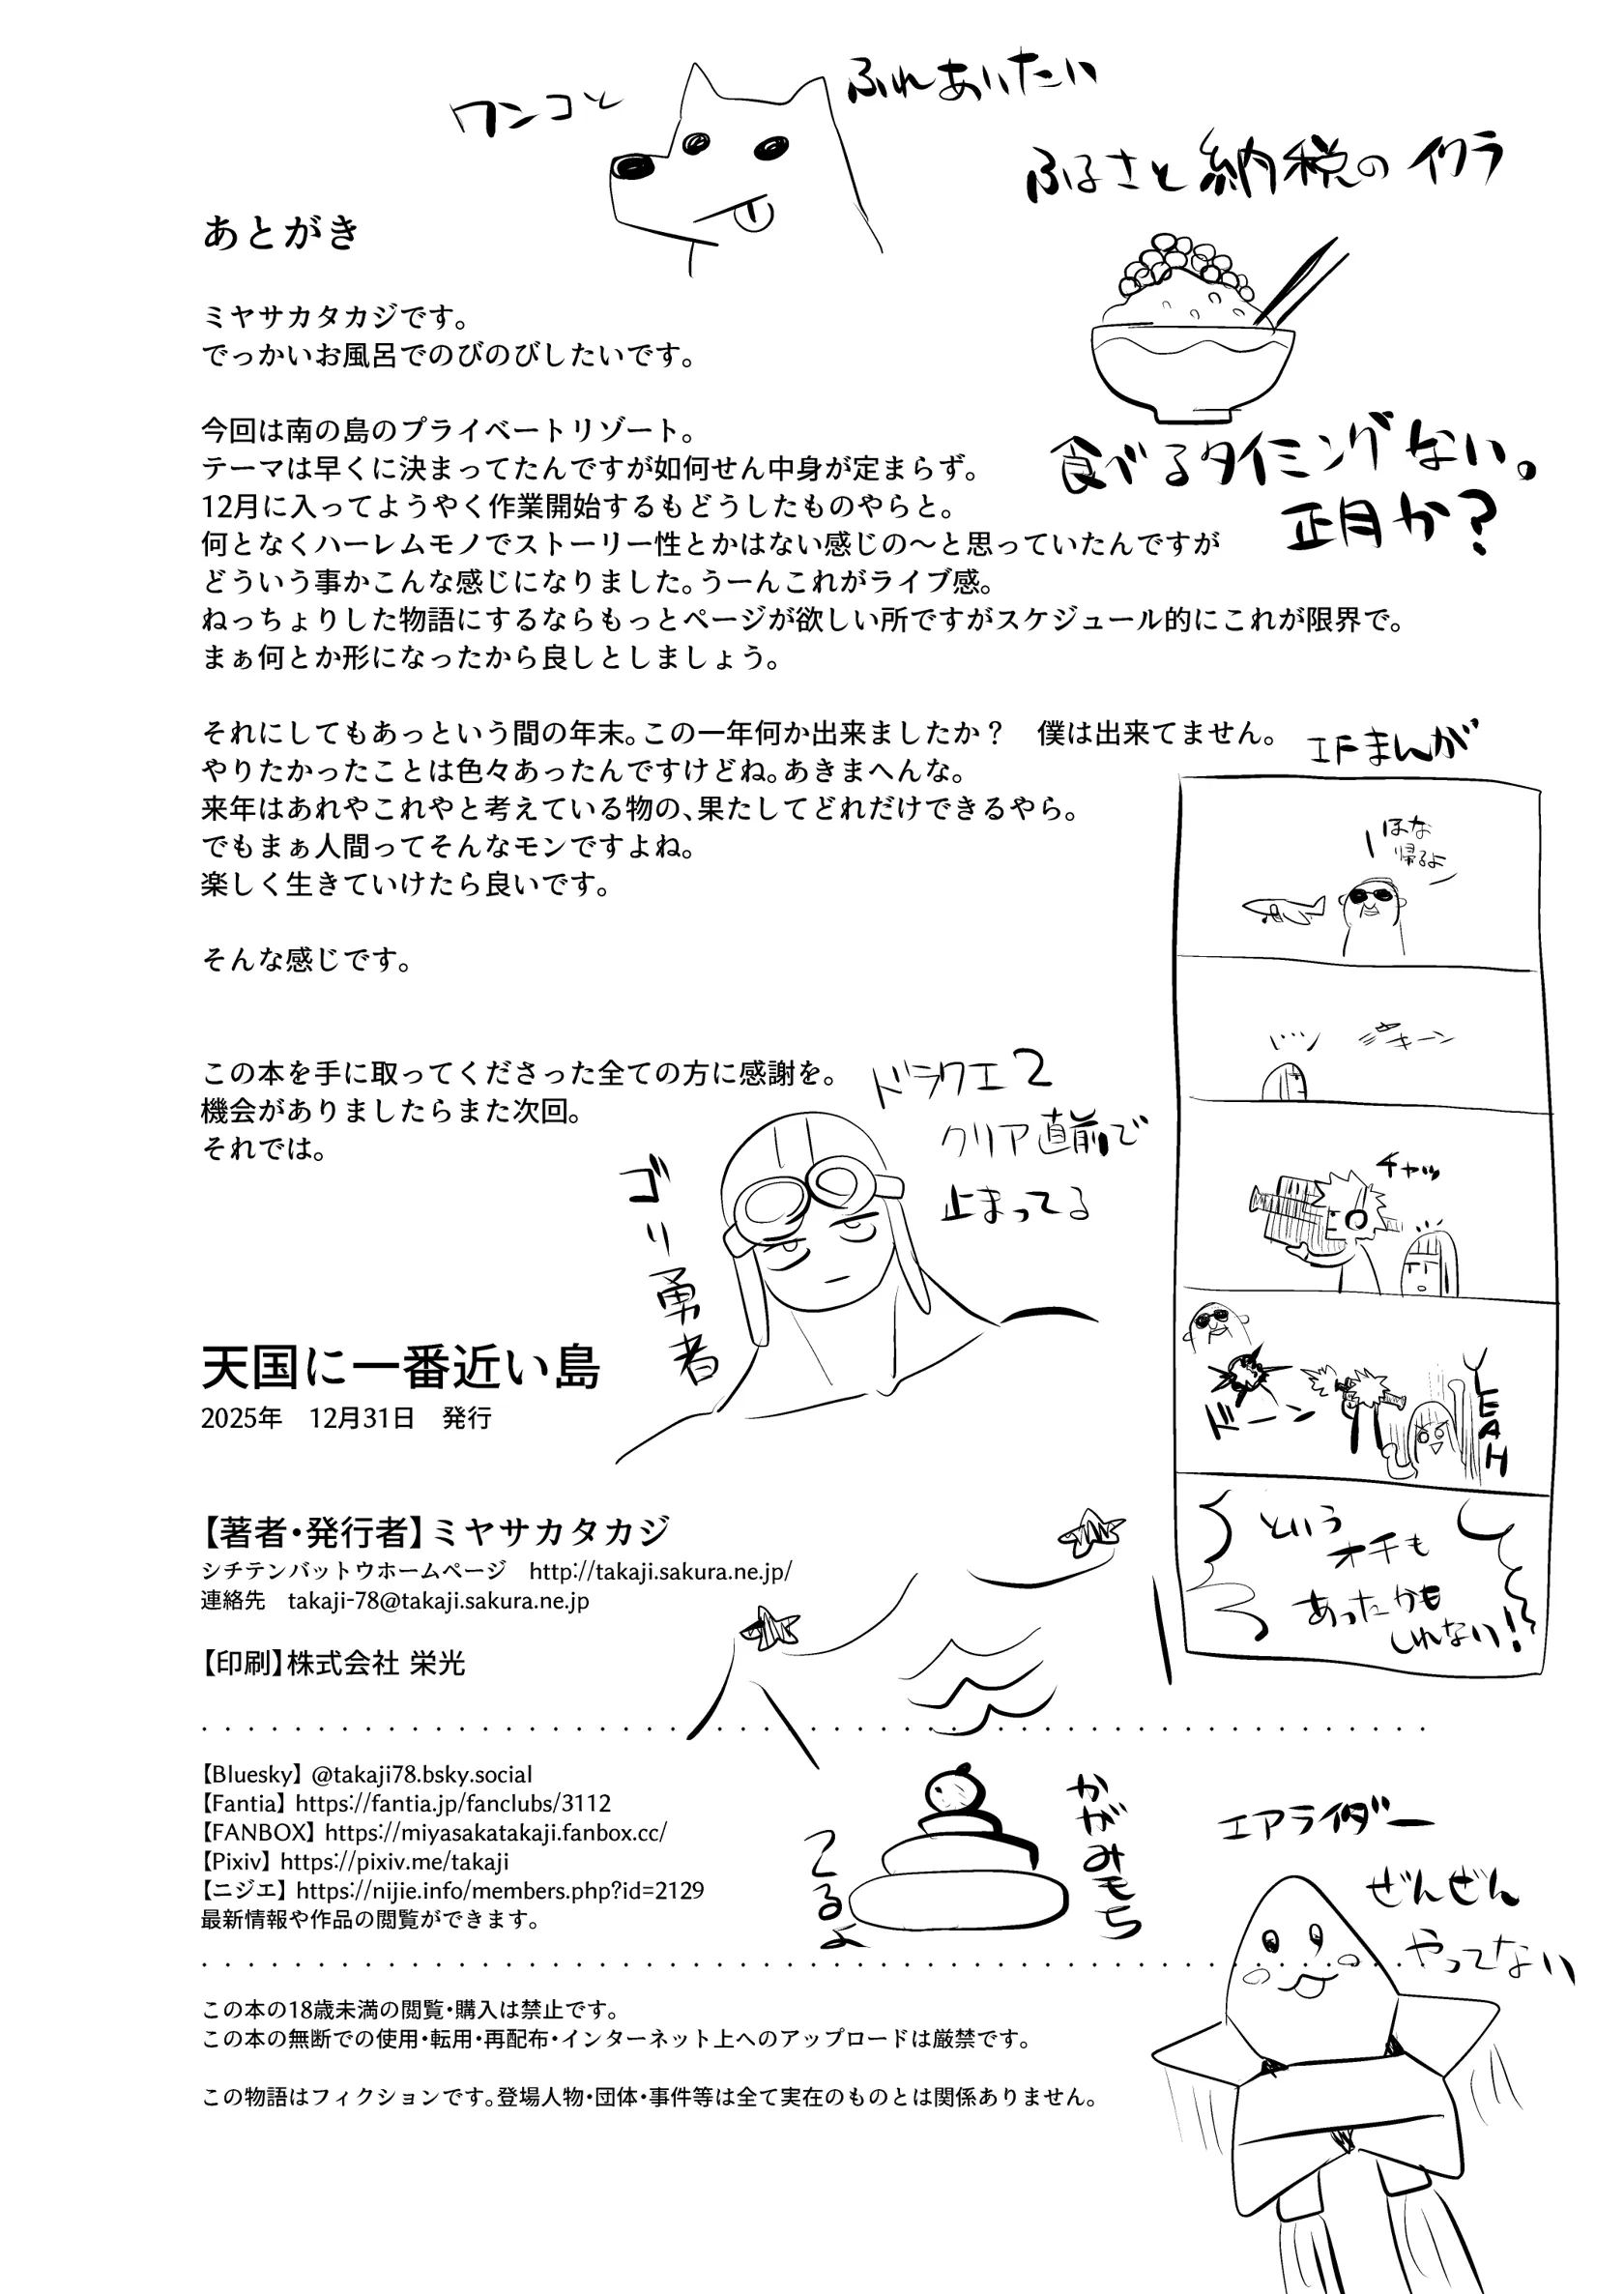 ワンコと
ふれあいたい
ふるさと納税のイクラ
食べるタイミングない。
正月か？
あとがき
ミヤサカタカジです。
でっかいお風呂でのびのびしたいです。
今回は南の島のプライベートリゾート。
テーマは早くに決まってたんですが如何せん中身が定まらず。
12月に入ってようやく作業開始するもどうしたものやらと。
何となくハーレムモノでストーリー性とかはない感じの〜と思っていたんですが
どういう事かこんな感じになりました。うーんこれがライブ感。
ねっちょりした物語にするならもっとページが欲しい所ですがスケジュール的にこれが限界で。
まぁ何とか形になったから良しとしましょう。
それにしてもあっという間の年末。この一年何か出来ましたか？　僕は出来てません。
やりたかったことは色々あったんですけどね。あきまへんな。
来年はあれやこれやと考えている物の、果たしてどれだけできるやら。
でもまぁ人間ってそんなモンですよね。
楽しく生きていけたら良いです。
そんな感じです。
この本を手に取ってくださった全ての方に感謝を。
機会がありましたらまた次回。
それでは。
IFまんが
ほな
帰るよ
キーン
チャッ
ドーン
YEAH
という
オチも
あったかも
しれない！
ドラクエ2
クリア直前で
止まってる
ゴリ勇者
天国に一番近い島
2025年　12月31日　発行
【著者・発行者】ミヤサカタカジ
シチテンバットウホームページ　http://takaji.sakura.ne.jp/
連絡先　takaji-78@takaji.sakura.ne.jp
【印刷】株式会社 栄光
【Bluesky】@takaji78.bsky.social
【Fantia】https://fantia.jp/fanclubs/3112
【FANBOX】https://miyasakatakaji.fanbox.cc/
【Pixiv】https://pixiv.me/takaji
【ニジエ】https://nijie.info/members.php?id=2129
最新情報や作品の閲覧ができます。
かがみモち
くるよ
エアライダー
ぜんぜん
やってない
この本の18歳未満の閲覧・購入は禁止です。
この本の無断での使用・転用・再配布・インターネット上へのアップロードは厳禁です。
この物語はフィクションです。登場人物・団体・事件等は全て実在のものとは関係ありません。